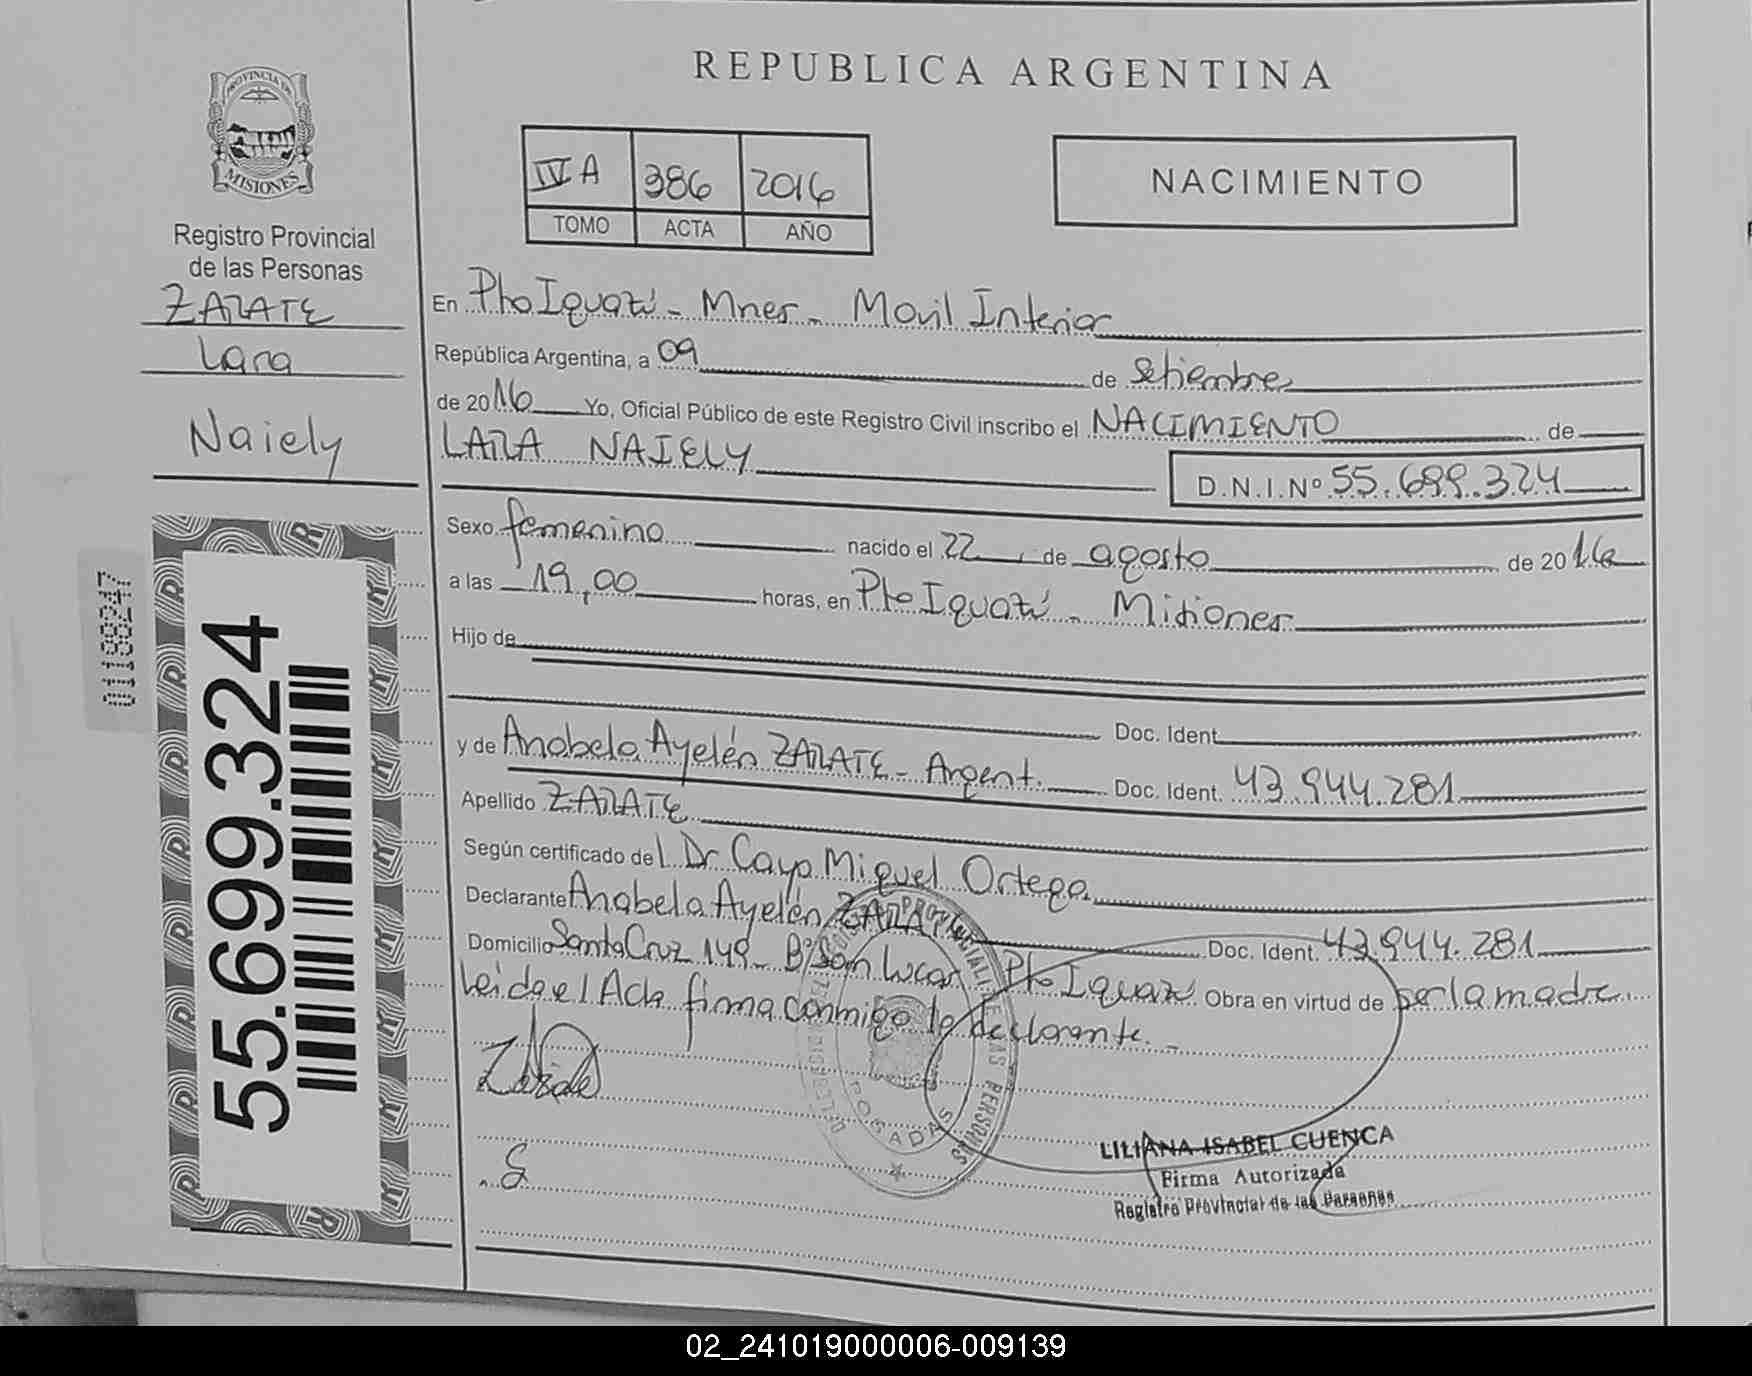 REPUBLICA ARGENTINA
PROVINCIA DE
MISIONES
Registro Provincial
de las Personas
ZARATE
Lara
Naiely
IV A 386 2016
TOMO ACTA AÑO
NACIMIENTO
En Pto Iguazú - Mnes - Movil Interior
República Argentina, a 09 de setiembre
de 2016 Yo, Oficial Público de este Registro Civil inscribo el NACIMIENTO de
LARA NAIELY
D.N.I.Nº 55.699.324
Sexo femenino nacido el 22 de agosto de 2016
a las 19,00 horas, en Pto Iguazú - Misiones
Hijo de
Doc. Ident.
y de Anabela Ayelén ZARATE - Argent. Doc. Ident. 43.944.281
Apellido ZARATE
Según certificado del Dr Cayo Miguel Ortega
Declarante Anabela Ayelén ZARATE Doc. Ident. 43.944.281
Domicilio Santa Cruz 149 - Bº San Lucas Pto Iguazú Obra en virtud de ser la madre
Leida el Acta firma conmigo la declarante. -
POSADAS
LILIANA ISABEL CUENCA
Firma Autorizada
Registro Provincial de las Personas
55.699.324
01188247
02_241019000006-009139